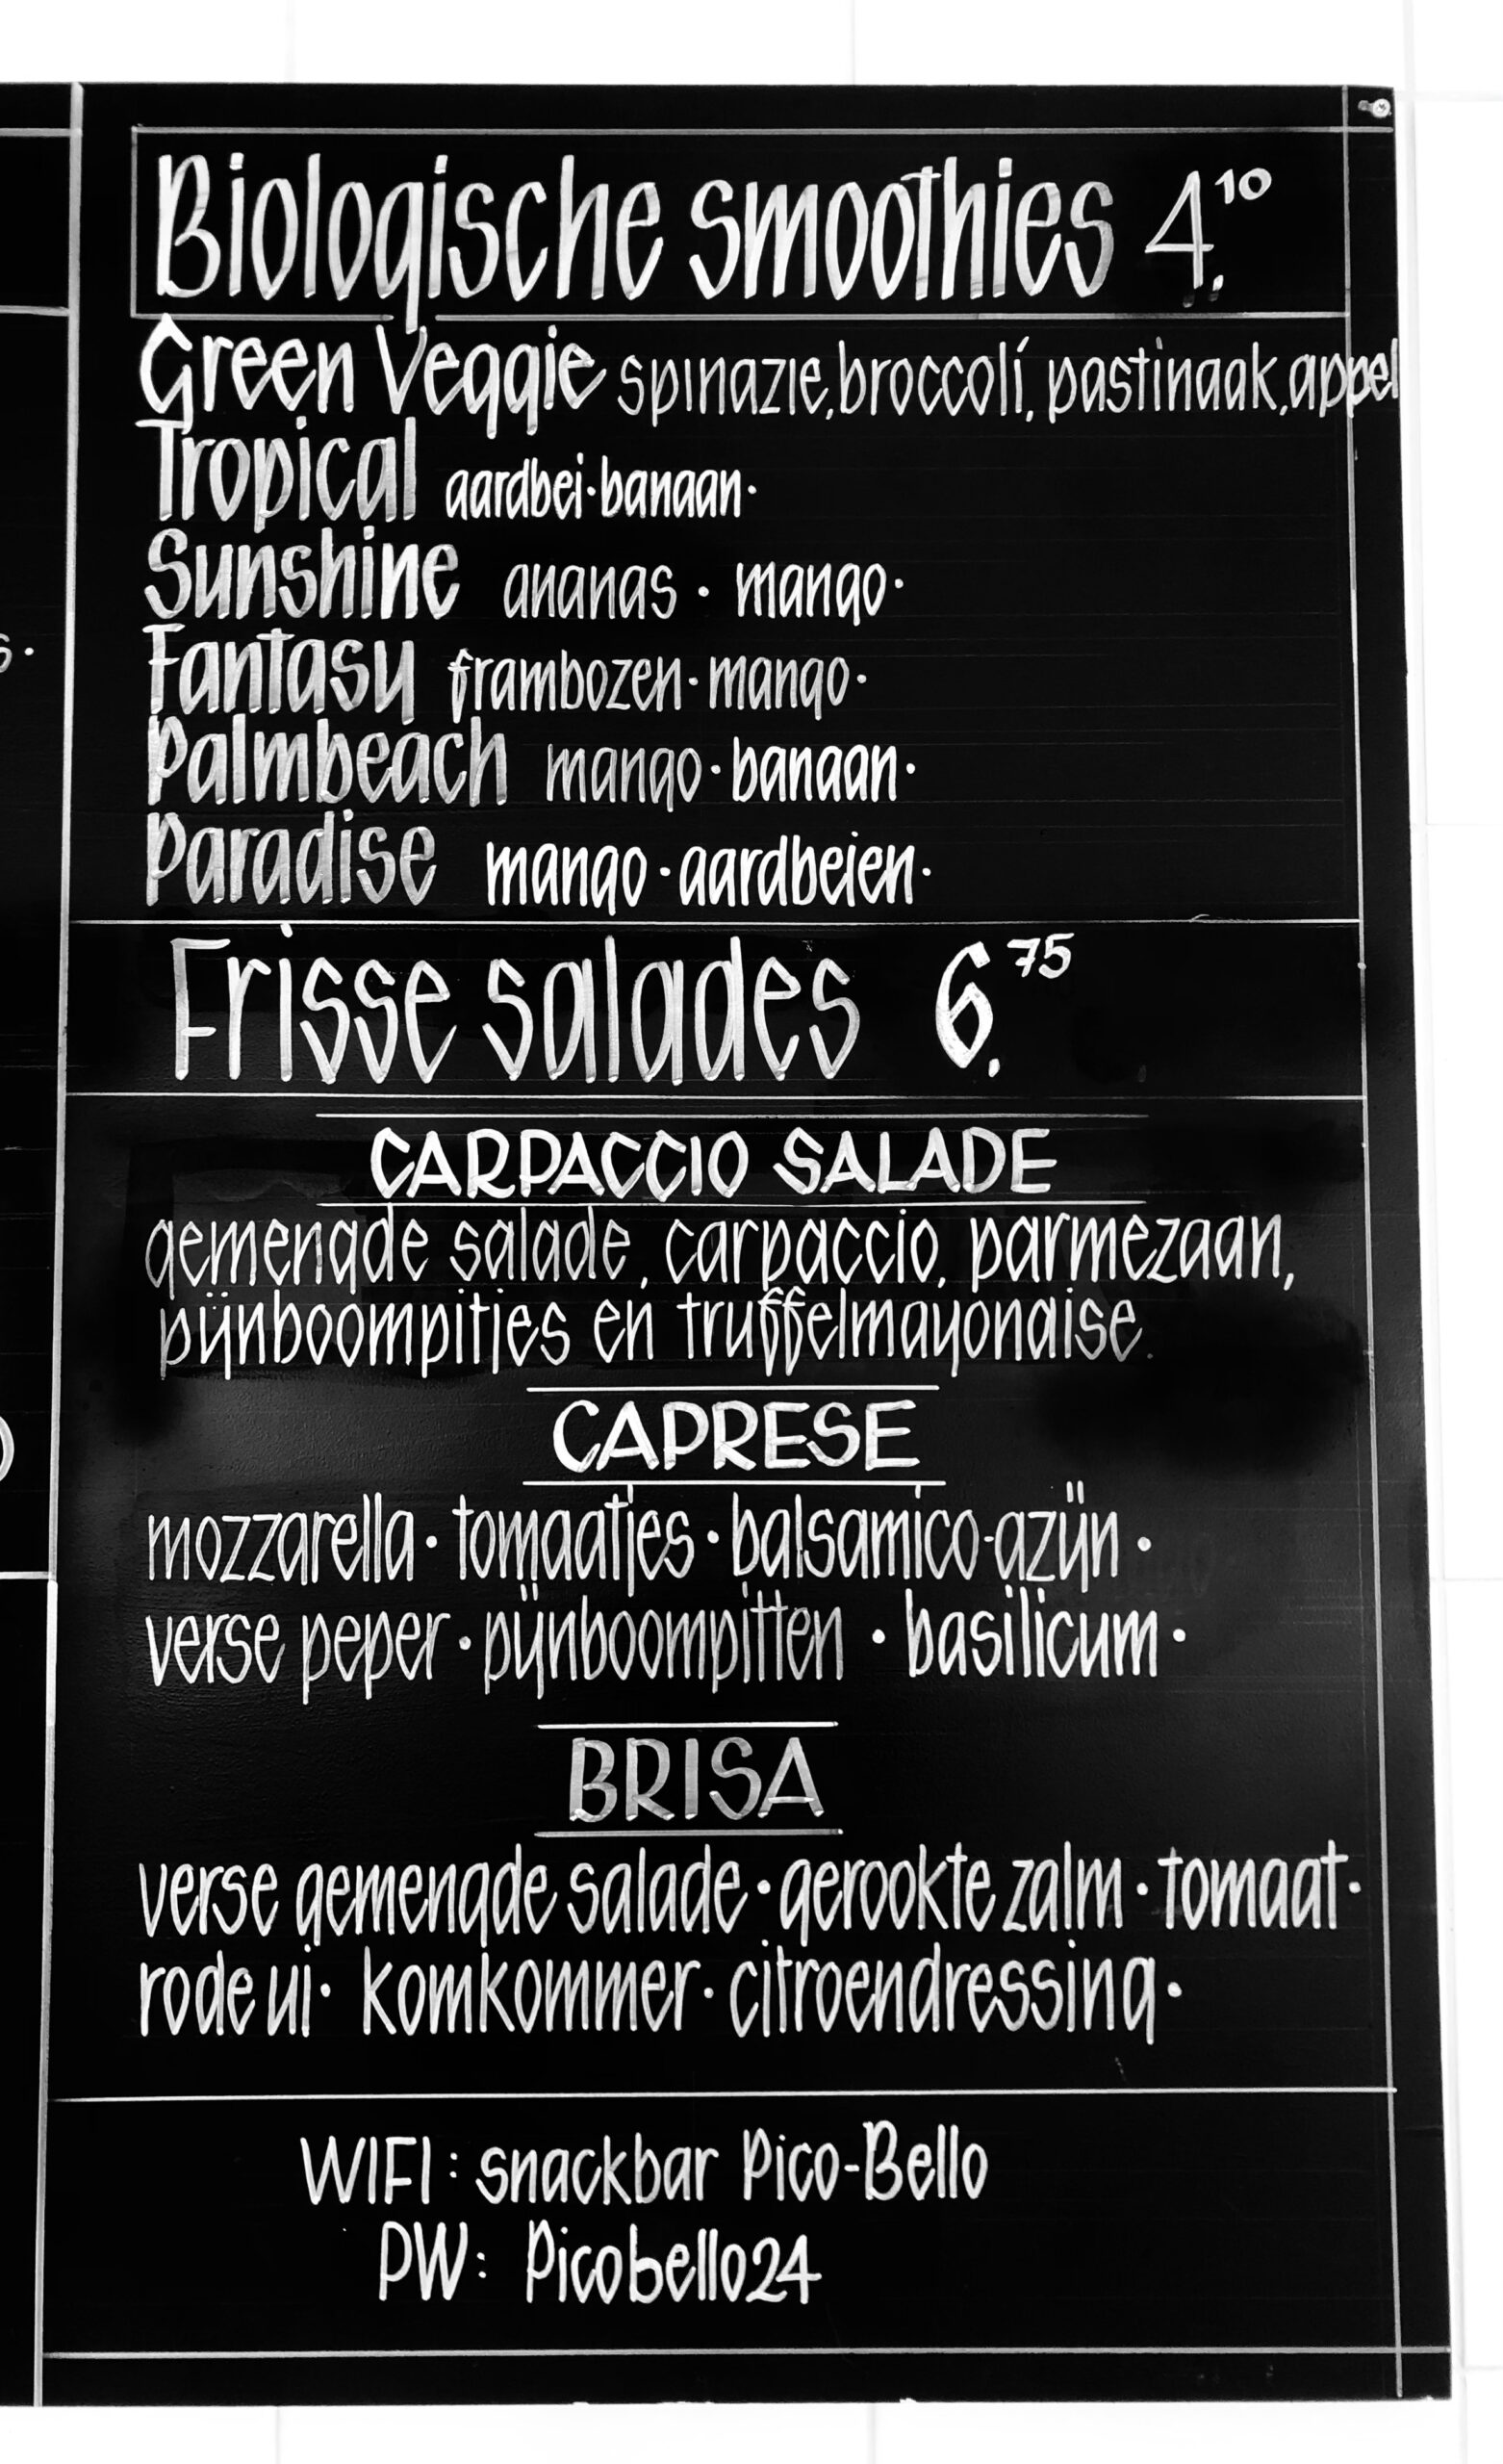 Biologische smoothies 4,10
Green Veggie spinazie, broccoli, pastinaak, appel
Tropical aardbei · banaan ·
Sunshine ananas · mango ·
Fantasy frambozen · mango ·
Palmbeach mango · banaan ·
Paradise mango · aardbeien ·
Frisse salades 6,75
CARPACCIO SALADE
gemengde salade, carpaccio, parmezaan,
pijnboompitjes en truffelmayonaise.
CAPRESE
mozzarella · tomaatjes · balsamico-azijn ·
verse peper · pijnboompitten · basilicum ·
BRISA
verse gemengde salade · gerookte zalm · tomaat ·
rode ui · komkommer · citroendressing ·
WIFI: snackbar Pico-Bello
PW: Picobello24